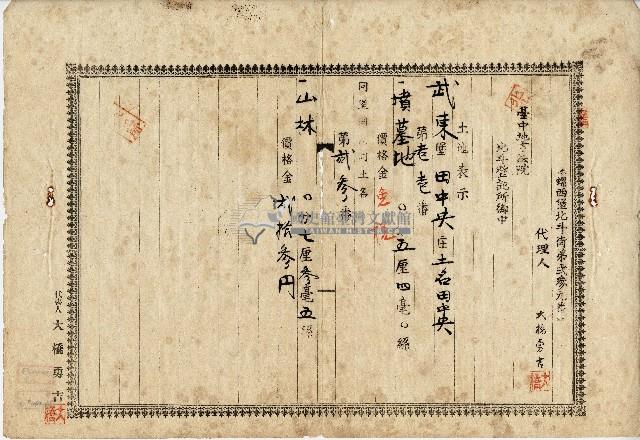 東螺西堡北斗街第弐參九番
代理人 大橋勇吉
臺中地方法院
北斗登記所御中
土地表示
武東堡田中央庄土名田中央
第老老番
一墳墓地 〇、五厘四毫〇絲
價格金
同堡同庄同土名
第弐參
一山林 〇、五七厘參毫五絲
價格金弐拾參円
代書人 大橋勇吉
國史館臺灣文獻館
TAIWAN HISTORICA